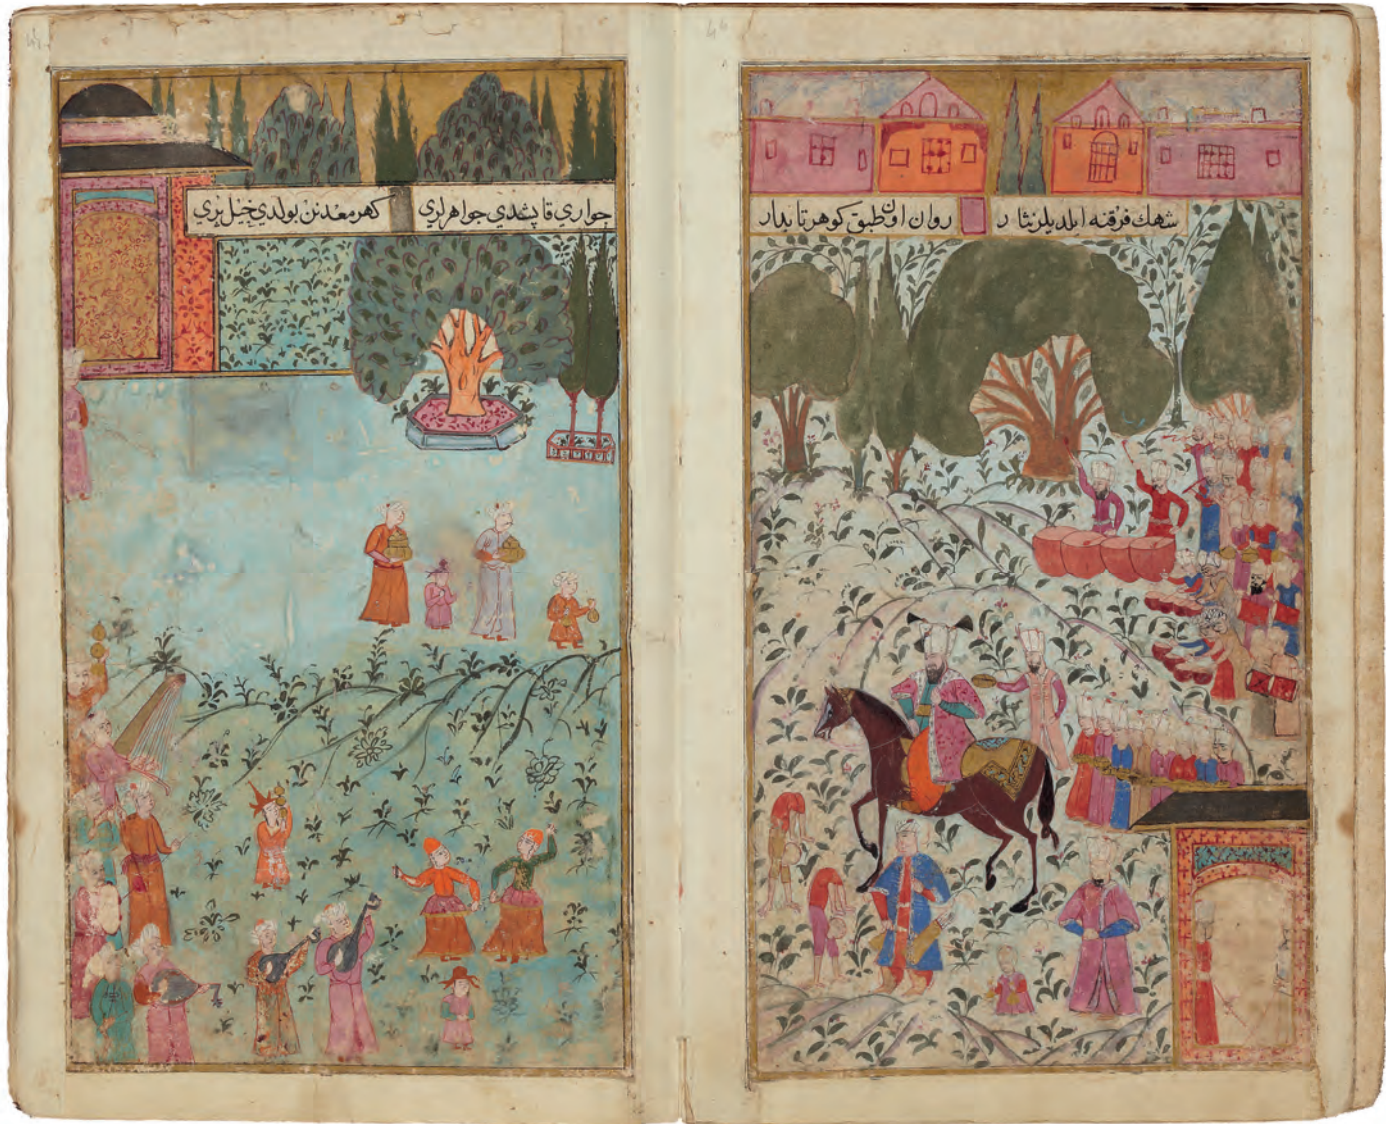 شهك فرقنه ايلديلر نثار روان اون طبق كوهر تابدار
جواري قاپشدي جواهرلري كهر معدنن بولدي خيل پري